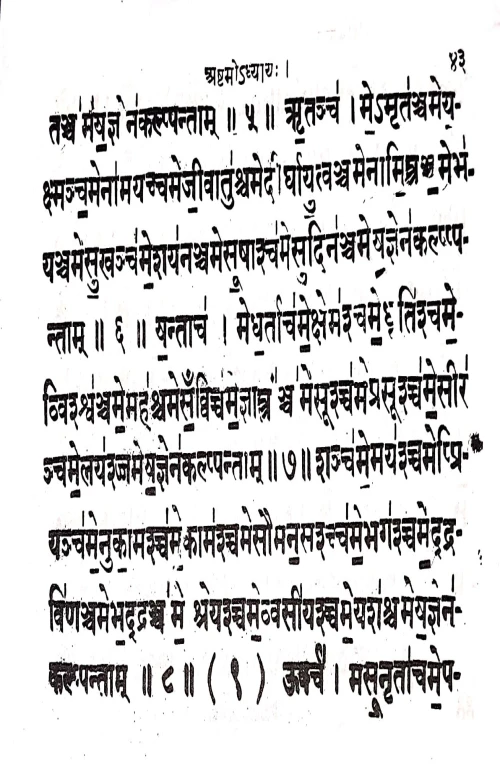 अष्टमोऽध्यायः । ४३
तञ्च॑ मेय॒ज्ञेन॑कल्प्पन्ताम् ॥ ५ ॥ ऋ॒तञ्च॑ । मे॒ऽमृत॑ञ्चमेय॒-
क्ष्मञ्च॒मेना॑मयच्चमेजी॒वातु॑श्चमेदी॑र्घायु॒त्वञ्चमेनामि॒त्त्रञ्च॒मेभ॑-
यञ्चमेसु॒खञ्च॑मे॒शय॑नञ्चमेसू॒षाश्च॑मेसु॒दिन॑ञ्चमेय॒ज्ञेन॑कल्प्प-
न्ताम् ॥ ६ ॥ य॒न्ताच॑ । मेध॒र्ताच॑मे॒क्षेम॑श्चमे॒धृति॑श्चमे॒-
व्विश्श्व॑ञ्चमे॒मह॑श्चमेसँ॒व्विच्च॑मे॒ज्ञात्त्र॑ञ्च मेसूश्च्च॑मेप्रसूश्च्च॑मे॒सीरं॑
ञ्चमे॒लय॑श्ज्जमेय॒ज्ञेन॑कल्प्पन्ताम् ॥ ७ ॥ शञ्च॑मे॒मय॑श्च्चमेप्प्रि-
यञ्च॑मेनुका॒मश्च्च॑मे॒काम॑श्च्चमेसौमन॒सश्च्च॑मे॒भग॑श्च्चमे॒द्द्र-
वि॑णञ्चमेभ॒द्द्रञ्च॑ मे॒ श्रेय॑श्च्चमे॒व्वसी॑यश्च्चमे॒यश॑श्चमेय॒ज्ञेन॑-
कल्पन्ताम् ॥ ८ ॥ ( ९ ) ऊर्क्च॑ । मसू॒नृता॑चमे॒प-